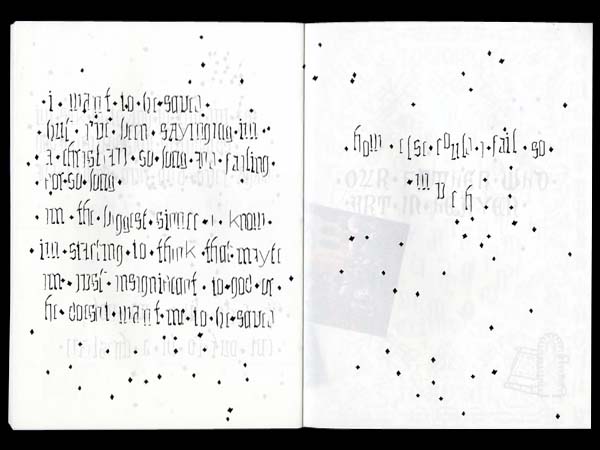 i want to be saved
but i've been saying im
a christian so long and failing
for so long
im the biggest sinner i know
im starting to think that maybe
im just insignificant to god or
he doesn't want me to be saved
how else could i fail so
much
OUR FATHER WHO
ART IN HEAVEN